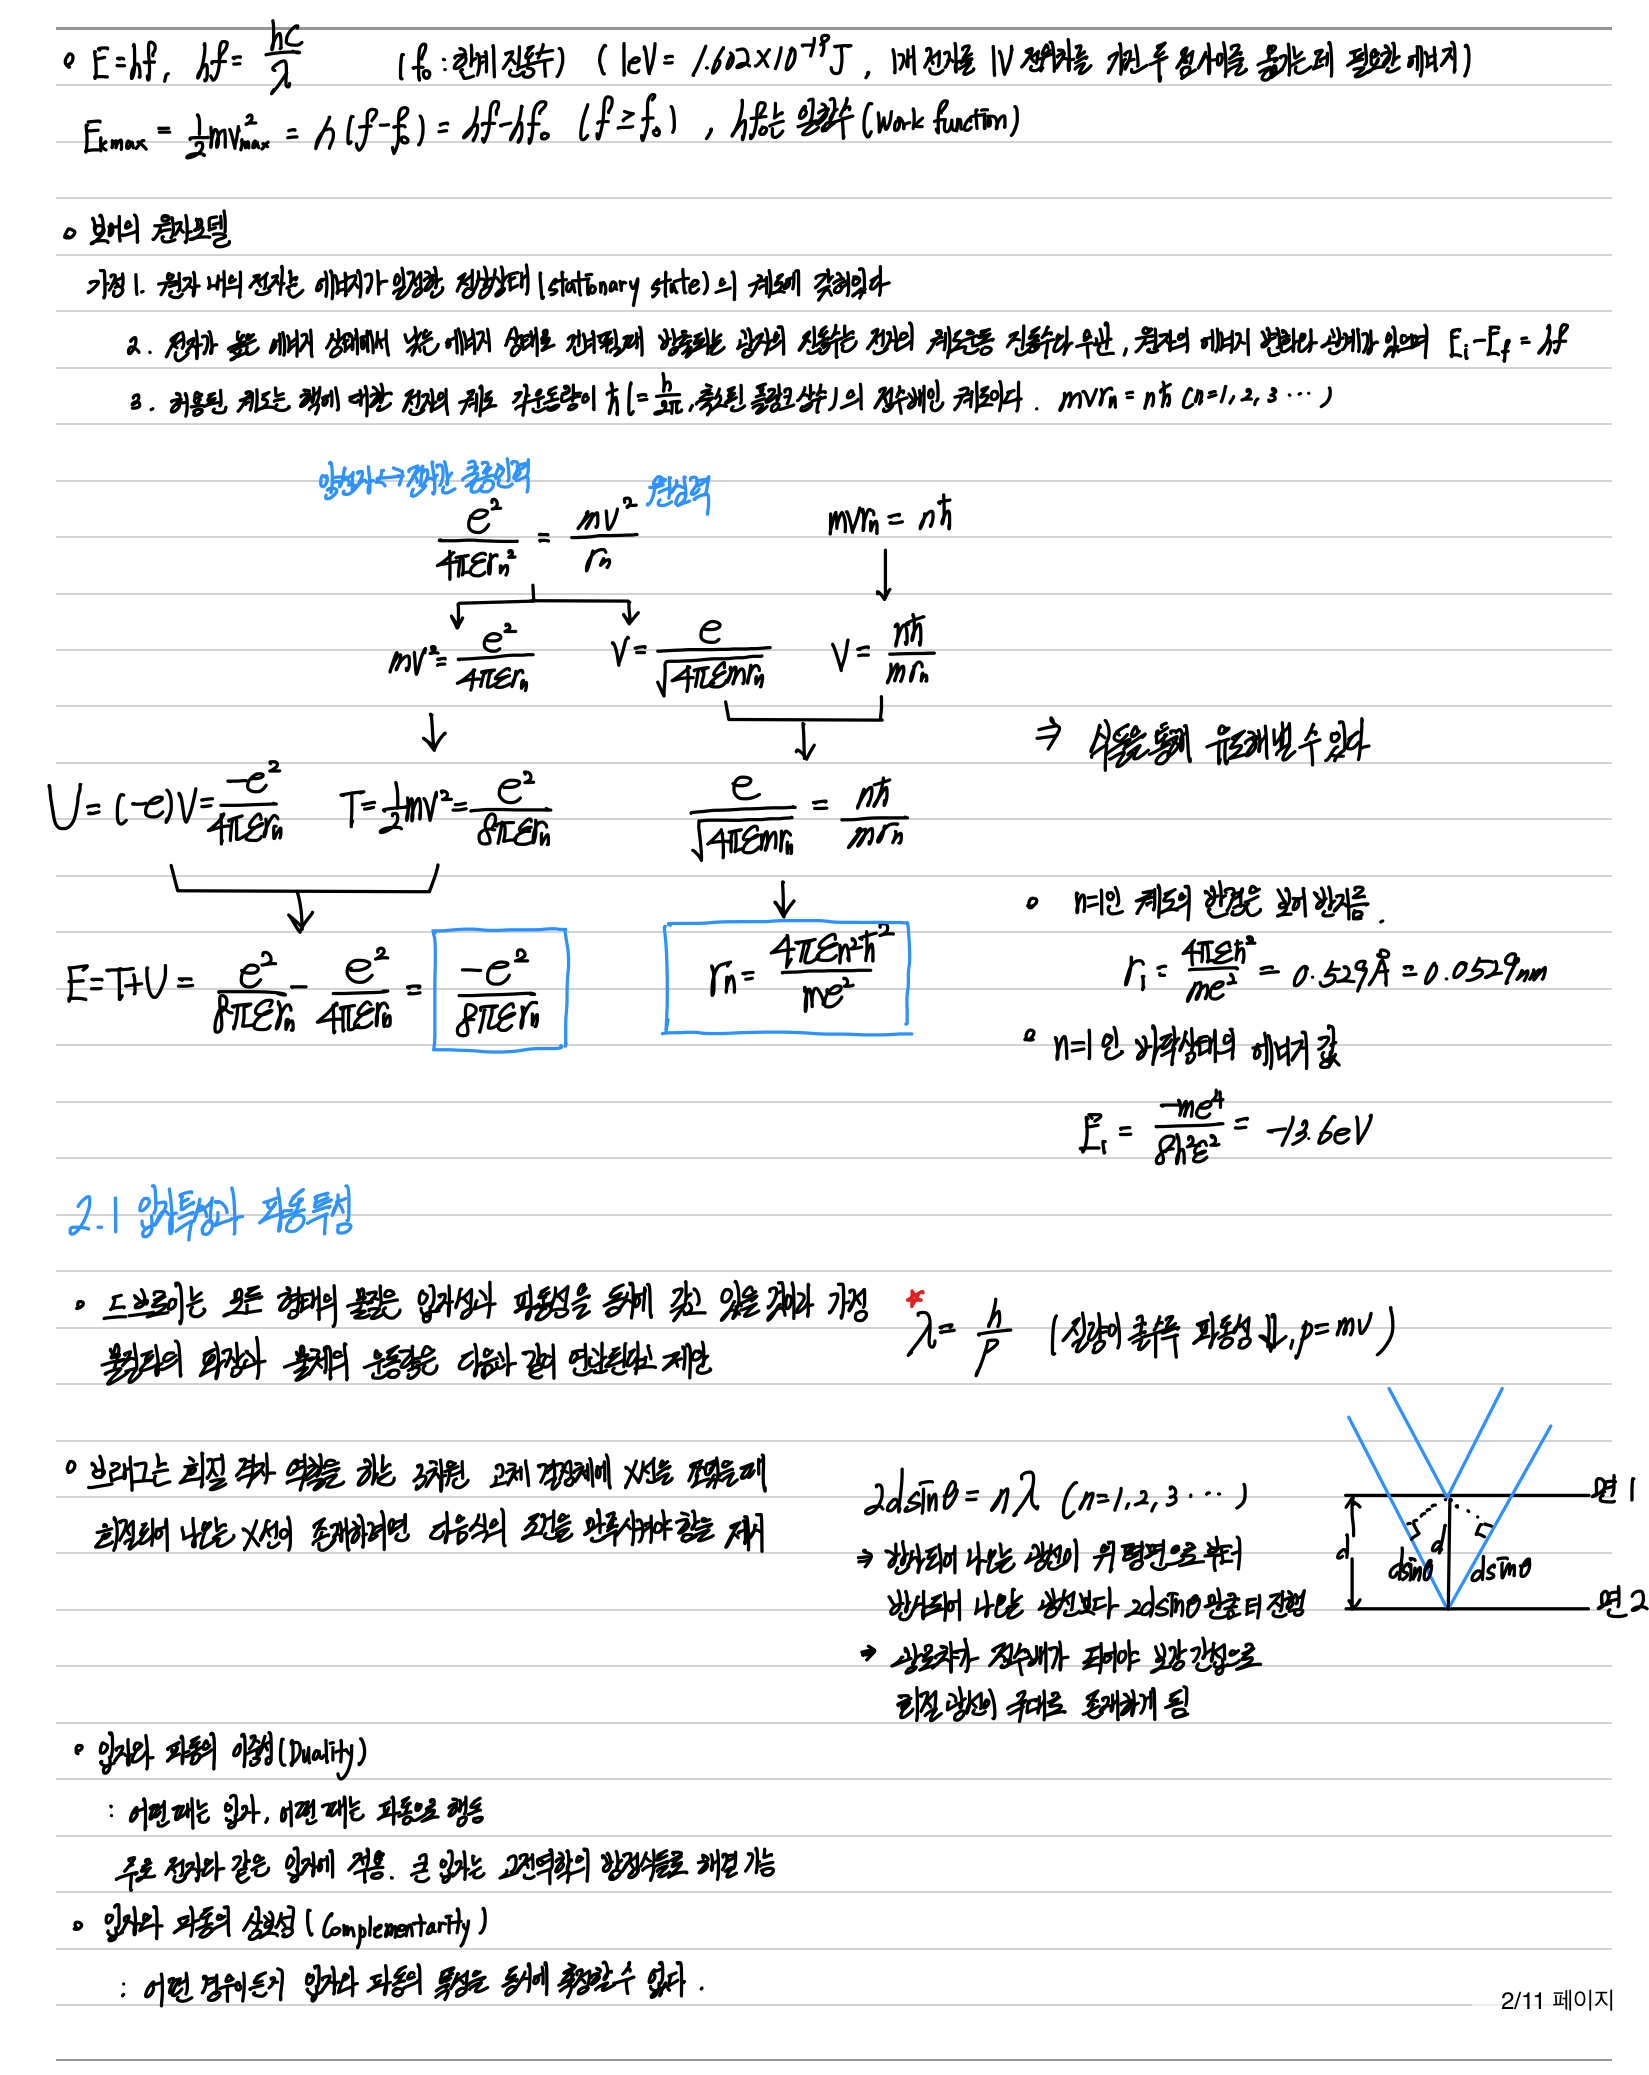 E=hf, hf= hc/λ (f₀ : 한계 진동수) (1eV = 1.602×10⁻¹⁹J, 1개 전자를 1V 전위차를 가진 두 점사이를 옮기는데 필요한 에너지)
Ekmax = 1/2 mv²max = h(f-f₀) = hf-hf₀ (f ≥ f₀) , hf₀는 일함수 (Work function)
보어의 원자모델
가정 1. 원자 내의 전자는 에너지가 일정한 정상상태 (stationary state)의 궤도에 갖혀있다
2. 전자가 높은 에너지 상태에서 낮은 에너지 상태로 전이될때 방출되는 광자의 진동수는 전자의 궤도운동 진동수와 무관, 원자의 에너지 변화와 관계가 있으며 Ei-Ef = hf
3. 허용된 궤도는 핵에 대한 전자의 궤도 각운동량이 ħ (= h/2π, 축소된 플랑크 상수)의 정수배인 궤도이다. mvrn = nħ (n=1, 2, 3 ⋯)
양성자↔전자간 쿨롱인력 원심력
e²/4πεrn² = mv²/rn mvrn = nħ
mv² = e²/4πεrn v = e/√4πεmrn v = nħ/mrn
⇒ 식들을 통해 유도해낼 수 있다
U = (-e)V = -e²/4πεrn T = 1/2 mv² = e²/8πεrn e/√4πεmrn = nħ/mrn
n=1인 궤도의 반경은 보어 반지름.
E=T+U = e²/8πεrn - e²/4πεrn = -e²/8πεrn rn = 4πεn²ħ²/me²
r₁ = 4πεħ²/me² = 0.529Å = 0.0529nm
n=1인 바닥상태의 에너지 값
E₁ = -me⁴/8h²ε² = -13.6eV
2.1 입자특성과 파동특성
드브로이는 모든 형태의 물질은 입자성과 파동성을 동시에 갖고 있을 것이라 가정
물질파의 파장과 물체의 운동량은 다음과 같이 연관된다고 제안
* λ = h/p (질량이 클수록 파동성 ⇓, p=mv)
브래그는 회절 격자 역할을 하는 3차원 고체 결정체에 X선을 쪼였을때
회절되어 나오는 X선이 존재하려면 다음식의 조건을 만족시켜야 함을 제시
2dsinθ = nλ (n=1, 2, 3 ⋯)
⇒ 반사되어 나오는 광선이 위 평면으로부터
반사되어 나오는 광선보다 2dsinθ만큼 더 진행
⇒ 광로차가 정수배가 되어야 보강 간섭으로
회절 광선이 극대로 존재하게 됨
면 1
d d dsinθ dsinθ
면 2
입자와 파동의 이중성 (Duality)
: 어떤 때는 입자, 어떤 때는 파동으로 행동
주로 전자와 같은 입자에 적용. 큰 입자는 고전역학의 방정식들로 해결 가능
입자와 파동의 상보성 (Complementarity)
: 어떤 경우이든지 입자와 파동의 특성을 동시에 측정할 수 없다.
2/11 페이지